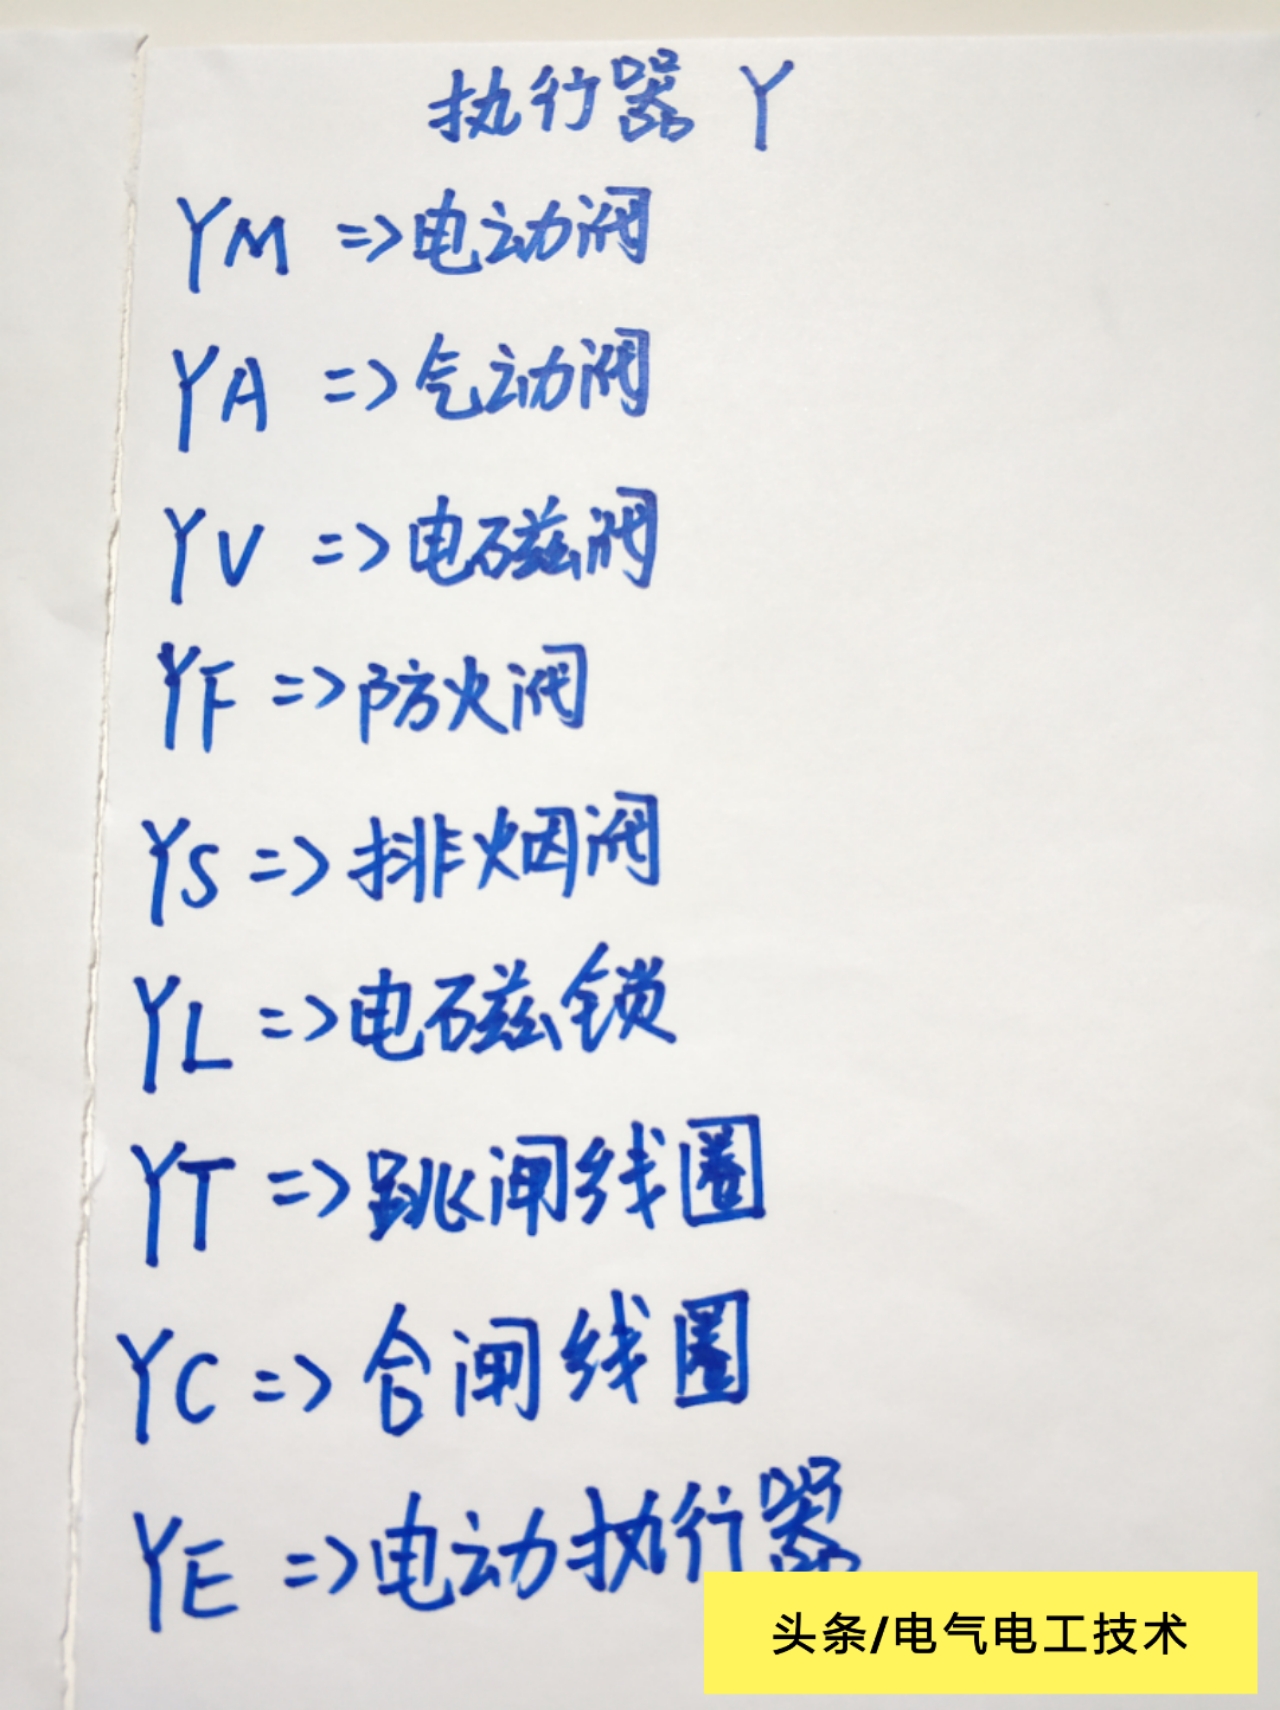 执行器 Y
YM => 电动阀
YA => 气动阀
YV => 电磁阀
YF => 防火阀
YS => 排烟阀
YL => 电磁锁
YT => 跳闸线圈
YC => 合闸线圈
YE => 电动执行器
头条/电气电工技术